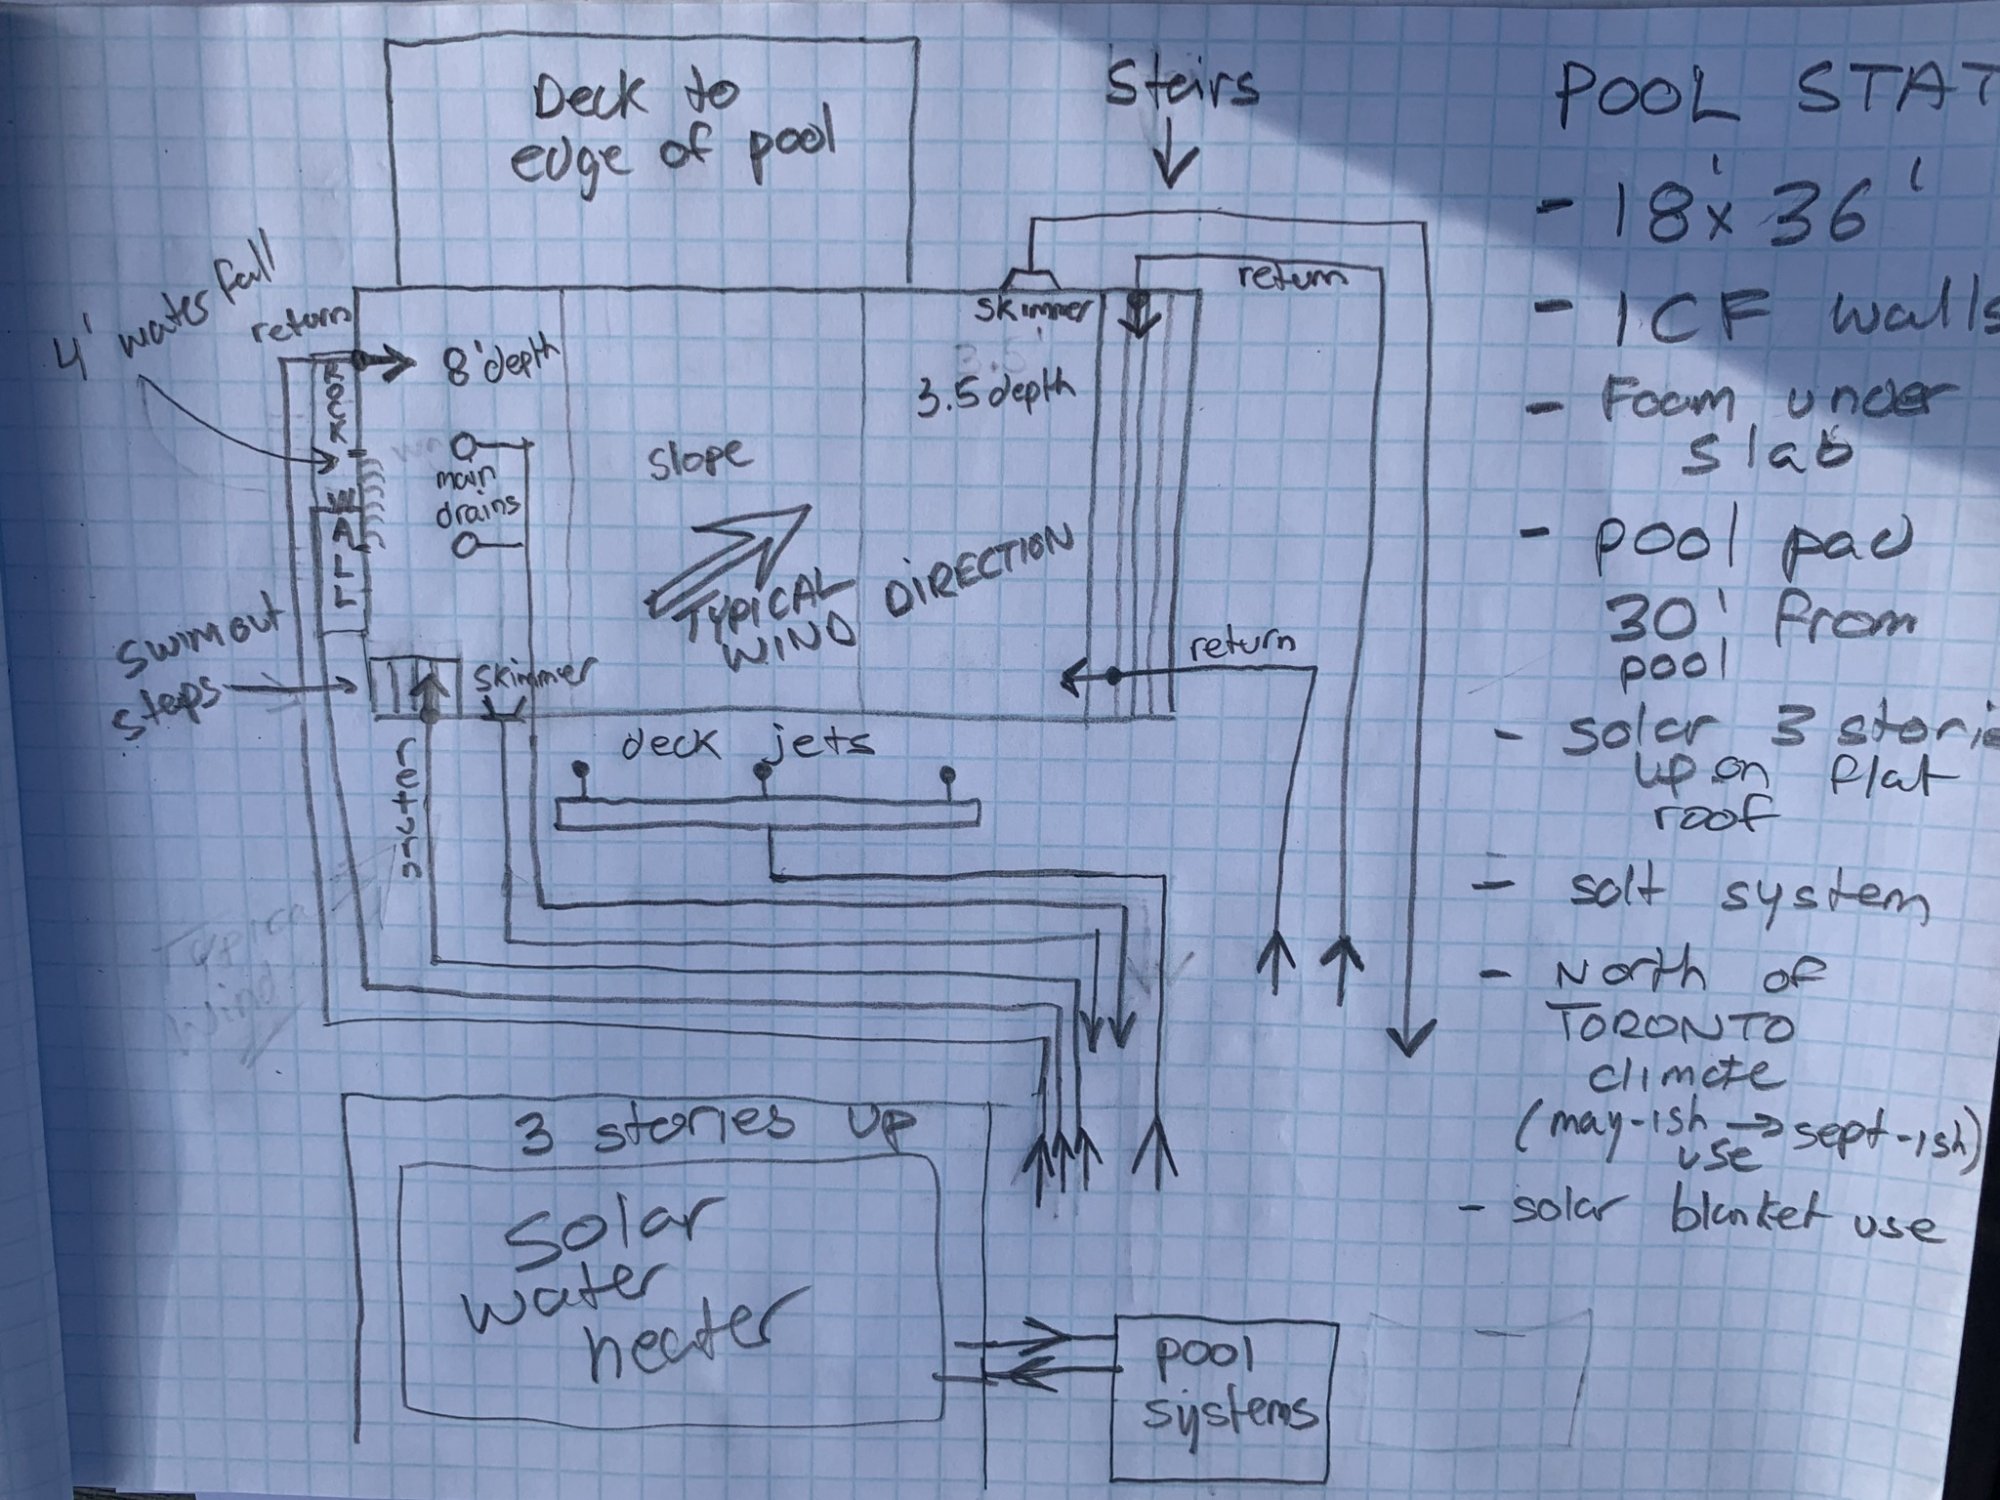 Deck to
edge of pool
Stairs
4' waterfall
return
return
skimmer
8' depth
3.5'
3.5 depth
ROCK
WALL
main
drains
slope
TYPICAL
WIND DIRECTION
swimout
steps
skimmer
return
return
deck jets
Typical
Wind
3 stories up
solar
water
heater
pool
systems
POOL STAT
- 18' x 36'
- ICF walls
- Foam under
slab
- pool pad
30' from
pool
- solar 3 storie
up on flat
roof
- salt system
- North of
TORONTO
climate
(may-ish → sept-ish)
use
- solar blanket use